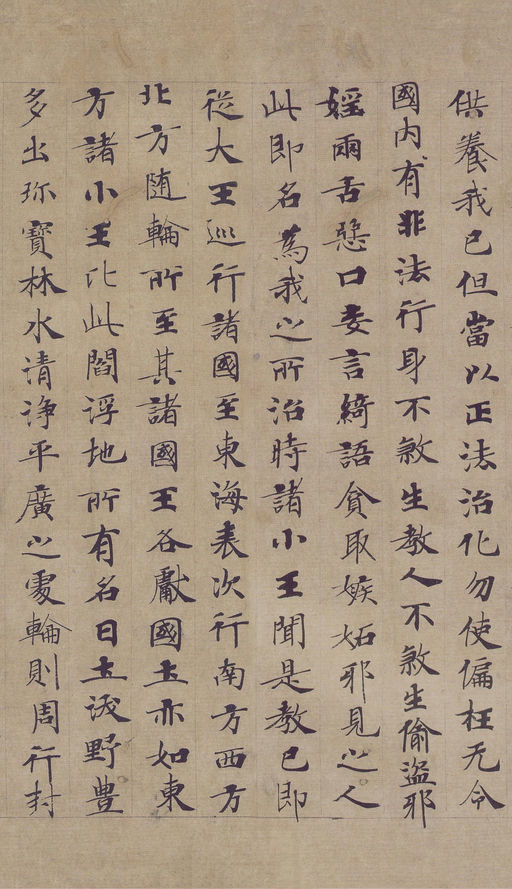 供養我已但當以正法治化勿使偏枉无令
國内有非法行身不煞生教人不煞生偷盜邪
婬兩舌惡口妄言綺語貪取嫉妬邪見之人
此即名為我之所治時諸小王聞是教已即
從大王巡行諸國至東海表次行南方西方
北方随輪所至其諸國王各獻國土亦如東
方諸小王比此閻浮地所有名曰土沃野豊
多出珎寶林水清浄平廣之處輪則周行封